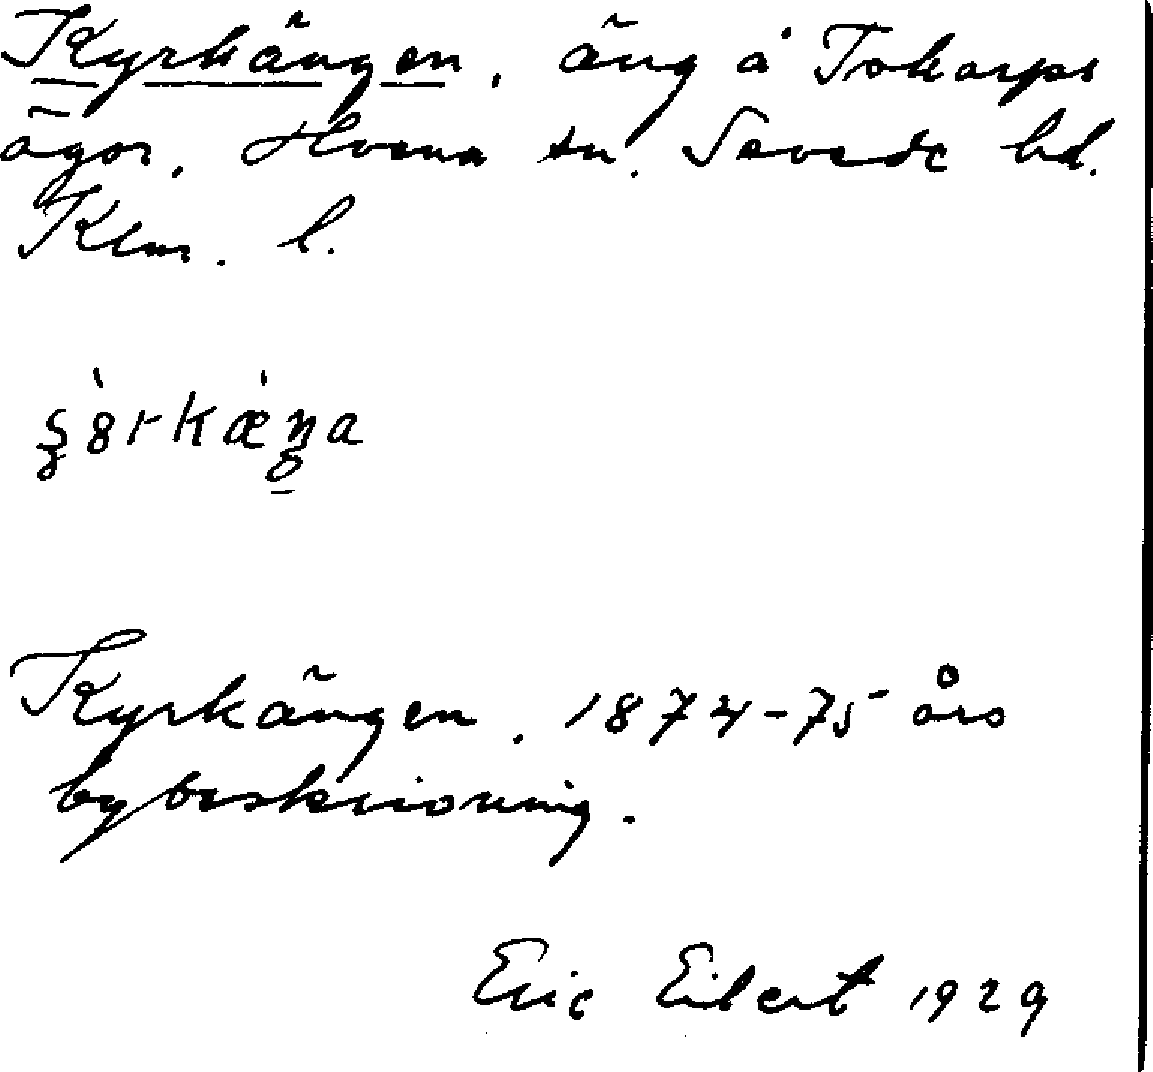 Kyrkängen, äng å Tokarps
ägor, Hvena sn. Sevede hd.
Klm. l.
Kyrkängen. 1874-75 års
bybeskrivning.
Eric Eilert 1929